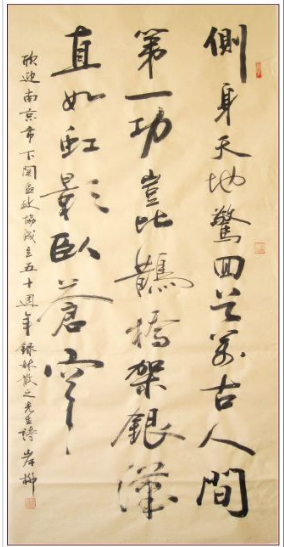 側身天地驚回首萬古人間
第一功豈比鵲橋架銀漢
直如虹影臥蒼穹
欣迎南京市下関區政協成立五十週年 錄林散之先生詩 岸柳